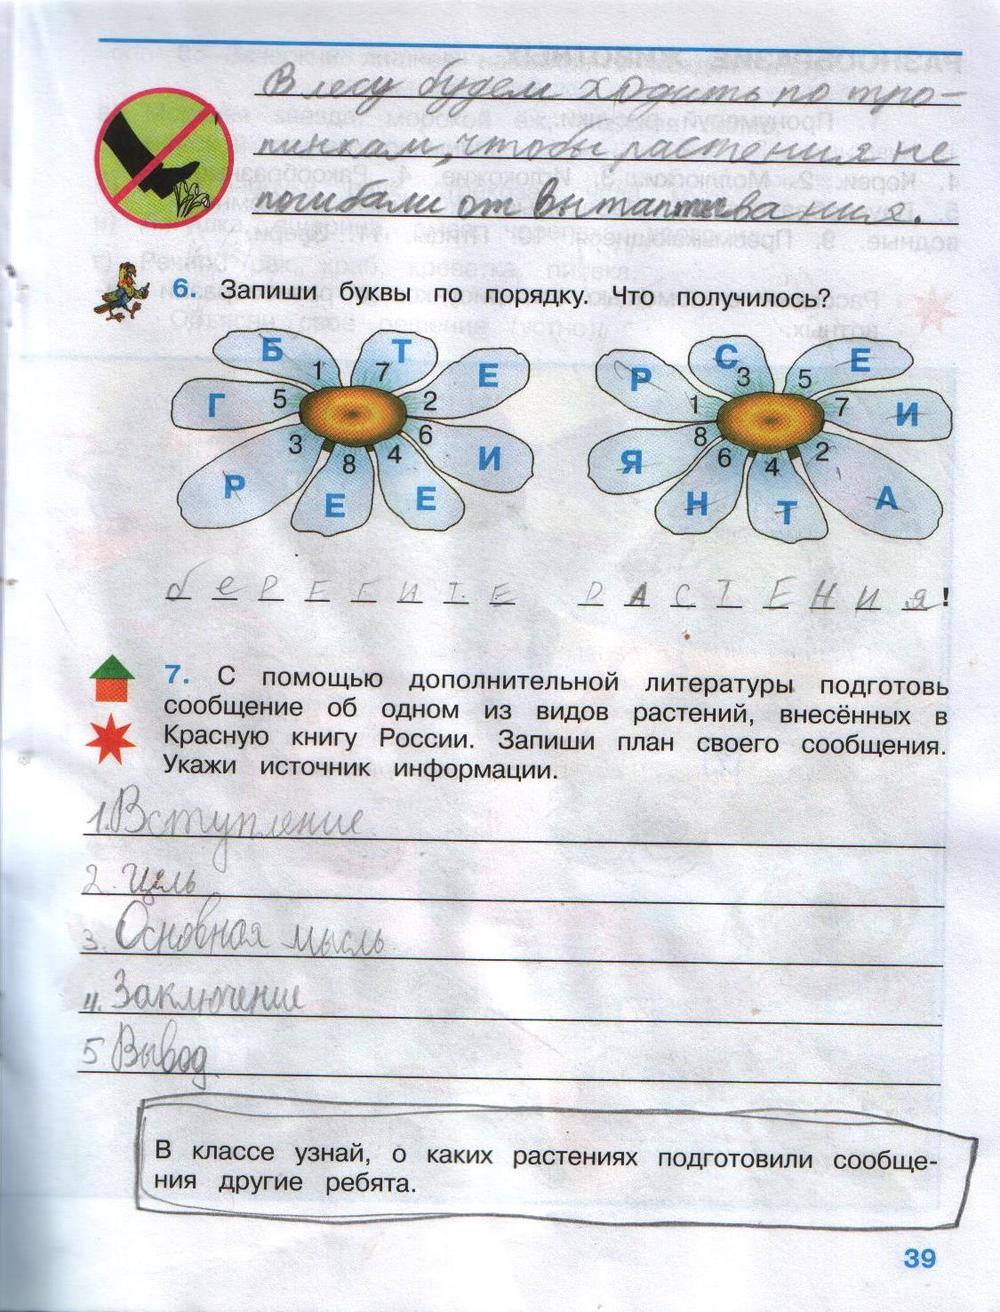 В лесу будем ходить по тро-
пинкам, чтобы растения не
погибали от вытаптывания.
6. Запиши буквы по порядку. Что получилось?
Б Т Е Г И Р Е Е
1 7 2 5 6 3 8 4
Р С Е И Я Н Т А
1 3 5 7 8 6 4 2
бЕРЕГИТЕ РАСТЕНИЯ!
7. С помощью дополнительной литературы подготовь
сообщение об одном из видов растений, внесённых в
Красную книгу России. Запиши план своего сообщения.
Укажи источник информации.
1. Вступление
2. Цель
3. Основная мысль
4. Заключение
5 Вывод
В классе узнай, о каких растениях подготовили сообще-
ния другие ребята.
39